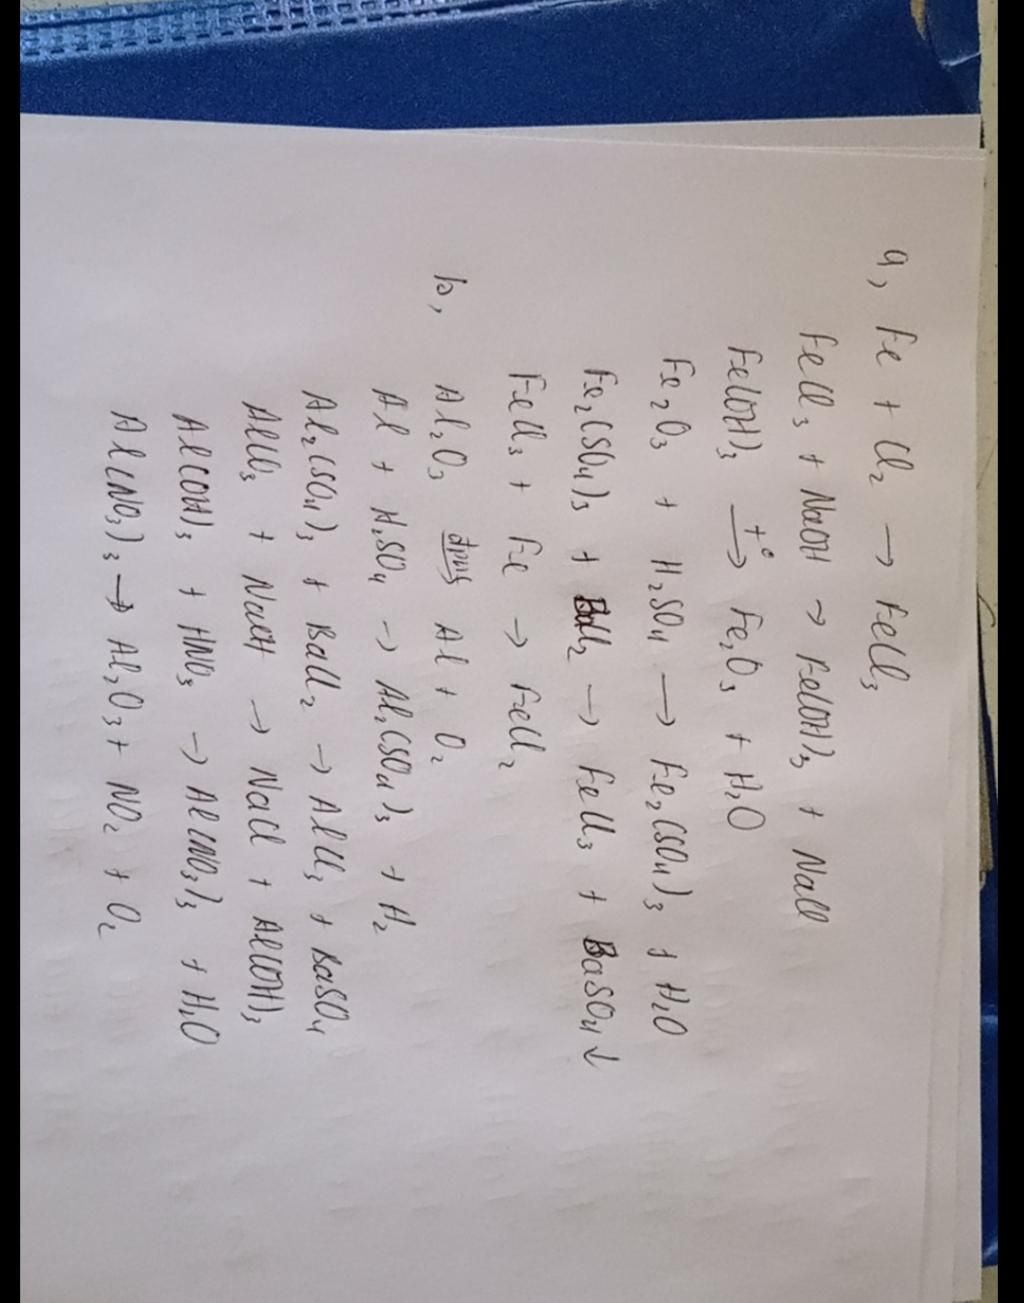 a, Fe + Cl₂ → FeCl₃
FeCl₃ + NaOH → Fe(OH)₃ + NaCl
Fe(OH)₃ →(t°) Fe₂O₃ + H₂O
Fe₂O₃ + H₂SO₄ → Fe₂(SO₄)₃ + H₂O
Fe₂(SO₄)₃ + BaCl₂ → FeCl₃ + BaSO₄ ↓
FeCl₃ + Fe → FeCl₂
b, Al₂O₃ →(đpnc) Al + O₂
Al + H₂SO₄ → Al₂(SO₄)₃ + H₂
Al₂(SO₄)₃ + BaCl₂ → AlCl₃ + BaSO₄
AlCl₃ + NaOH → NaCl + Al(OH)₃
Al(OH)₃ + HNO₃ → Al(NO₃)₃ + H₂O
Al(NO₃)₃ → Al₂O₃ + NO₂ + O₂